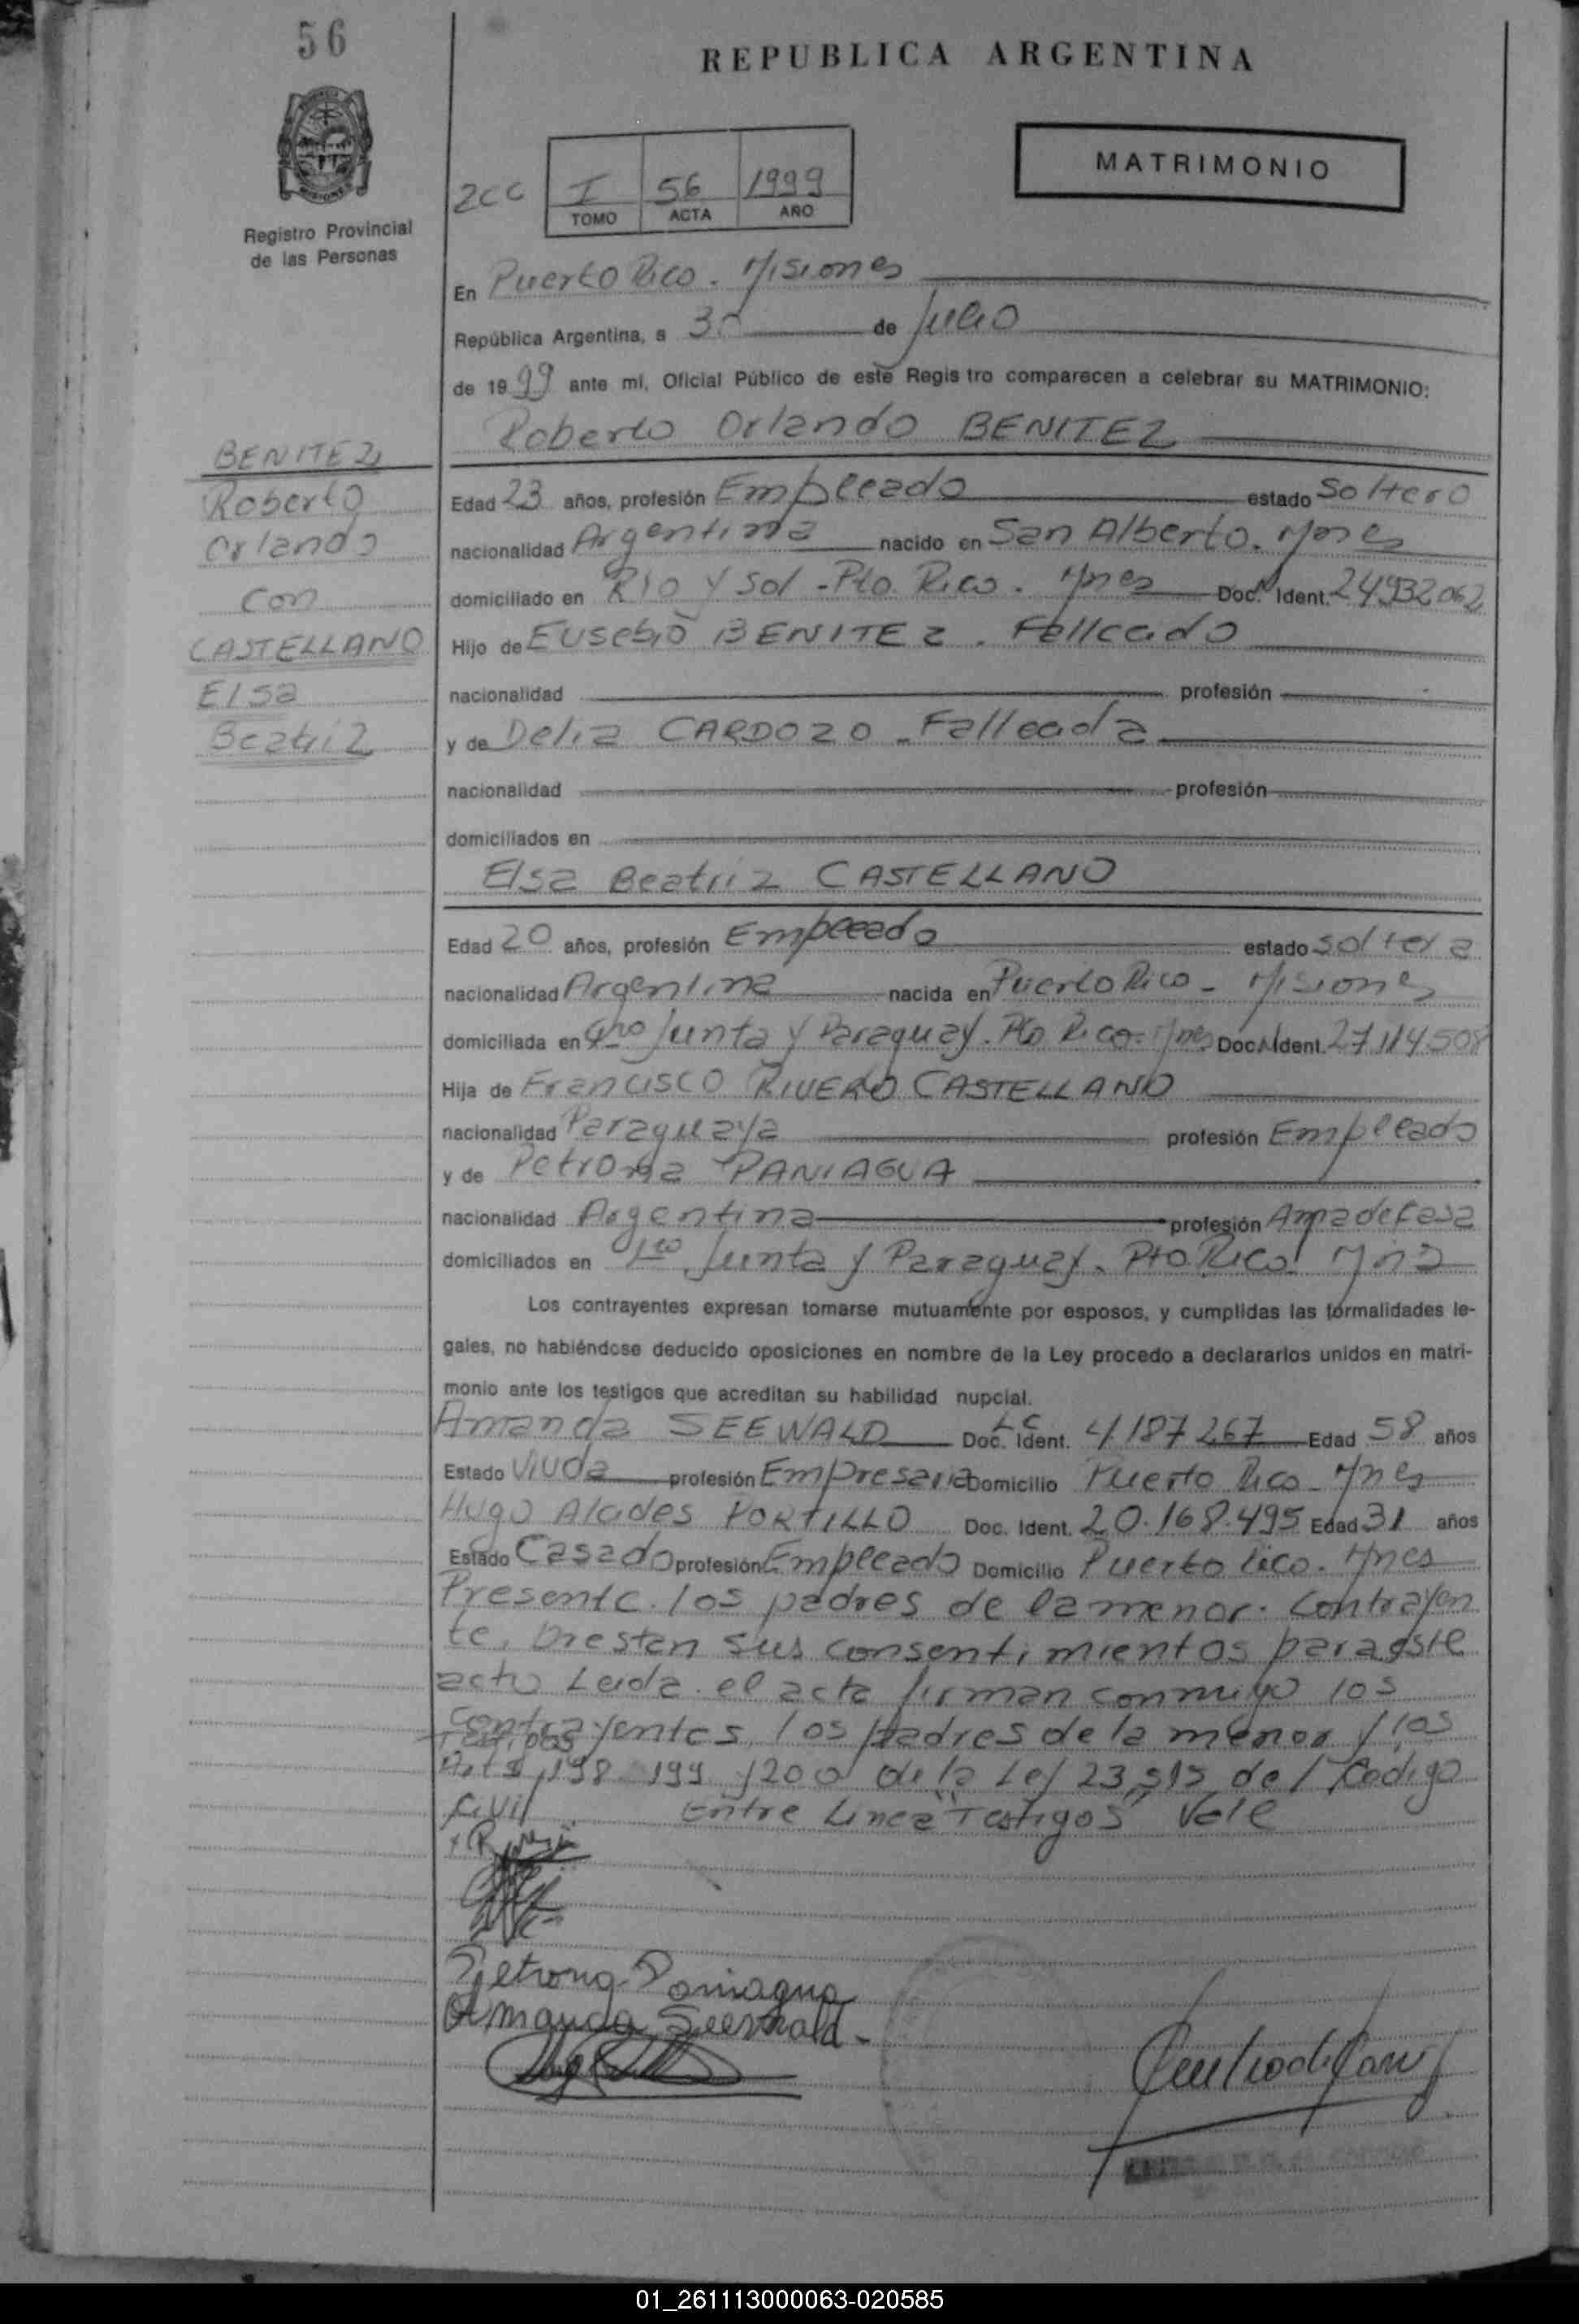 56
REPUBLICA ARGENTINA
MATRIMONIO
2CC I 56 1999
TOMO ACTA AÑO
Registro Provincial
de las Personas
En Puerto Rico. Misiones
República Argentina, a 30 de Julio
de 1999 ante mí, Oficial Público de este Registro comparecen a celebrar su MATRIMONIO:
Roberto Orlando BENITEZ
BENITEZ
Roberto
Orlando
con
CASTELLANO
Elsa
Beatriz
Edad 23 años, profesión Empleado estado Soltero
nacionalidad Argentina nacido en San Alberto. Mnes
domiciliado en Rio y Sol - Pto. Rico. Mnes Doc. Ident. 24932062
Hijo de Eusebio BENITEZ. Fallecido
nacionalidad profesión
y de Delia CARDOZO - Fallecida
nacionalidad profesión
domiciliados en
Elsa Beatriz CASTELLANO
Edad 20 años, profesión Empleado estado soltera
nacionalidad Argentina nacida en Puerto Rico - Misiones
domiciliada en Junta y Paraguay. Pto Rico - Mnes Doc. Ident. 27114508
Hija de Francisco RIVERO CASTELLANO
nacionalidad Paraguaya profesión Empleado
y de Petrona PANIAGUA
nacionalidad Argentina profesión Ama de Casa
domiciliados en 1ro Junta y Paraguay. Pto Rico. Mns
Los contrayentes expresan tomarse mutuamente por esposos, y cumplidas las formalidades le-
gales, no habiéndose deducido oposiciones en nombre de la Ley procedo a declararlos unidos en matri-
monio ante los testigos que acreditan su habilidad nupcial.
Amanda SEEWALD Doc. Ident. LC 4187267 Edad 58 años
Estado Viuda profesión Empresaria Domicilio Puerto Rico - Mnes
Hugo Alcides PORTILLO Doc. Ident. 20.168.495 Edad 31 años
Estado Casado profesión Empleado Domicilio Puerto Rico. Mnes
Presente. los padres de la menor. Contrayen
te, prestan sus consentimientos para este
acto Leida el acta firman conmigo los
contrayentes, los padres de la menor y los
Testigos
Arts 198 199 y 200 de la Ley 23.515 del Codigo
Civil Entre Linea "Testigos" Vale
Petrona Paniagua
Amanda Seewald
01_261113000063-020585